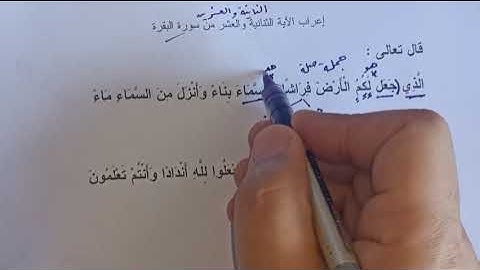 الثانية والعشرين
إعراب الآية الثنائية والعشر من سورة البقرة
قال تعالى :
هو جملة صلة
الَّذِي (جَعَلَ لَكُمُ الْأَرْضَ فِرَاشًا السَّمَاءَ بِنَاءً وَأَنْزَلَ مِنَ السَّمَاءِ مَاءً
لِلَّهِ أَنْدَادًا وَأَنْتُمْ تَعْلَمُونَ